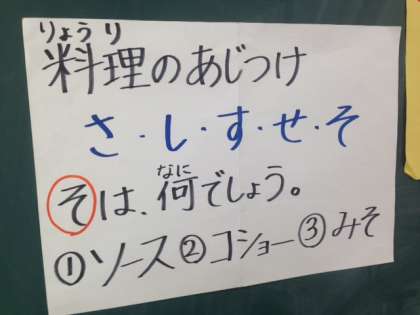 りょうり
料理のあじつけ
さ・し・す・せ・そ
なに
そは、何でしょう。
①ソース②コショー③みそ